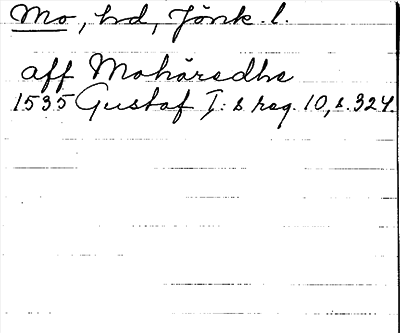 Mo, hd, Jönk. l.
aff Mohäredhe
1535 Gustaf I:s reg. 10, s. 324.